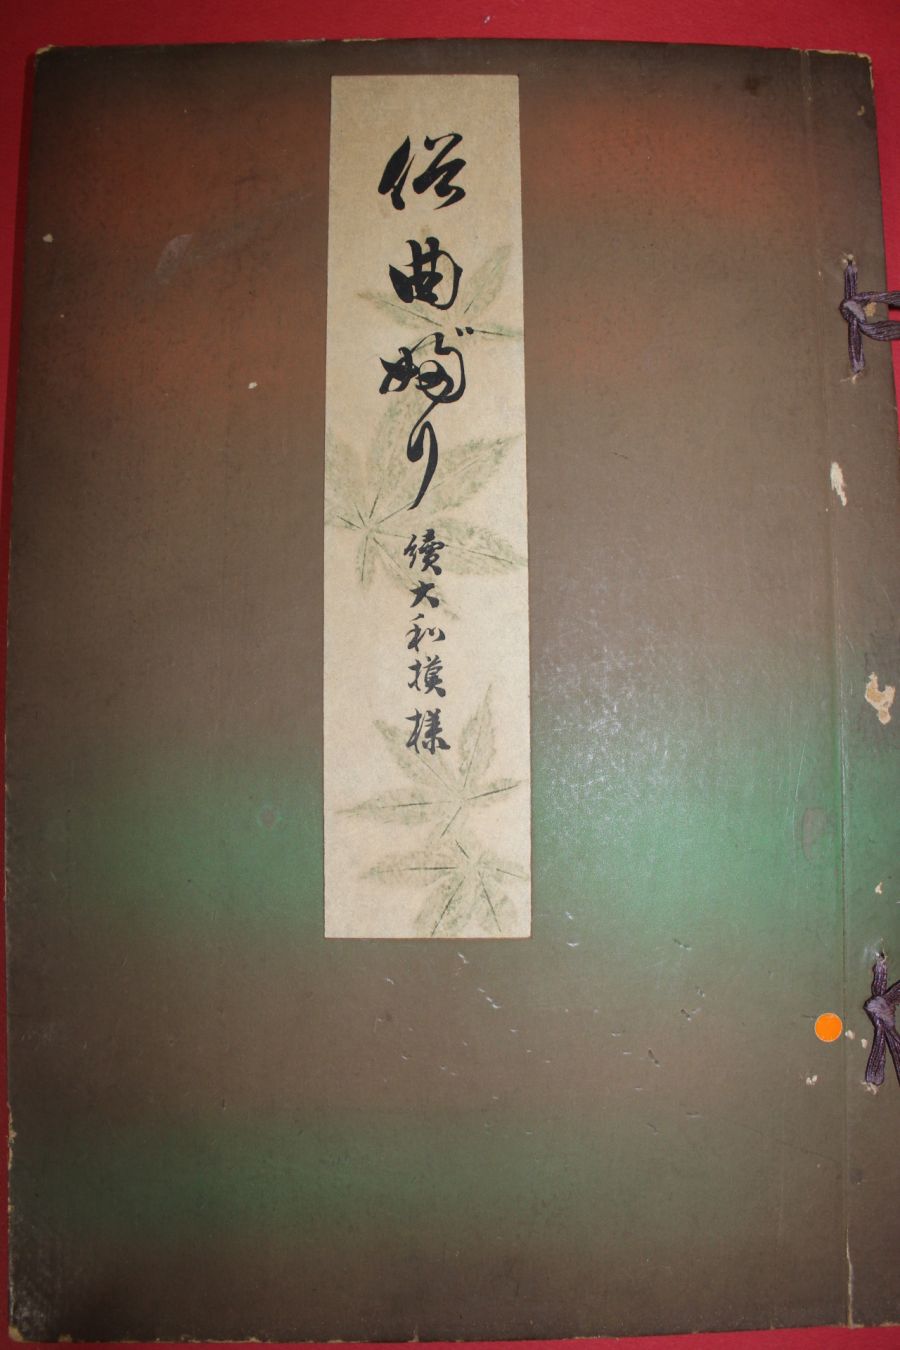 俗曲ぶり
續大和模様